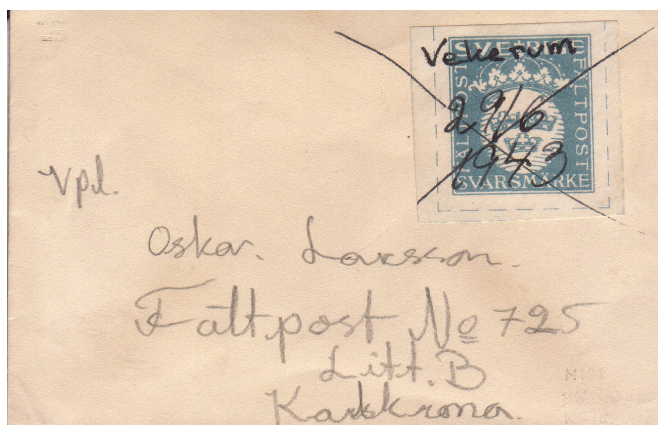 SVERIGE
Vekerum
FÄLTPOST
FÄLTPOST
29/6
1943
SVARSMÄRKE
Vpl.
Oskar. Larsson.
Fältpost No 725
Litt. B
Karlskrona.